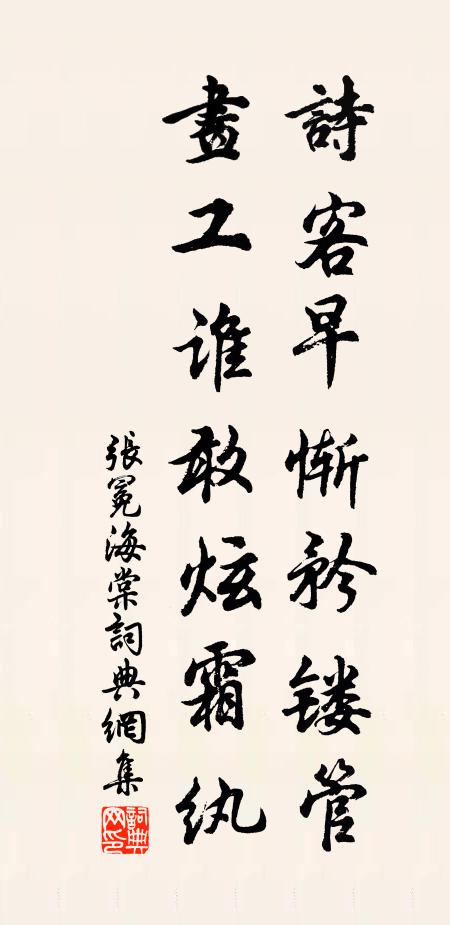 詩客早慚矜镂管
畫工誰敢炫霜紈
張冕海棠詞典網集
詞典網印